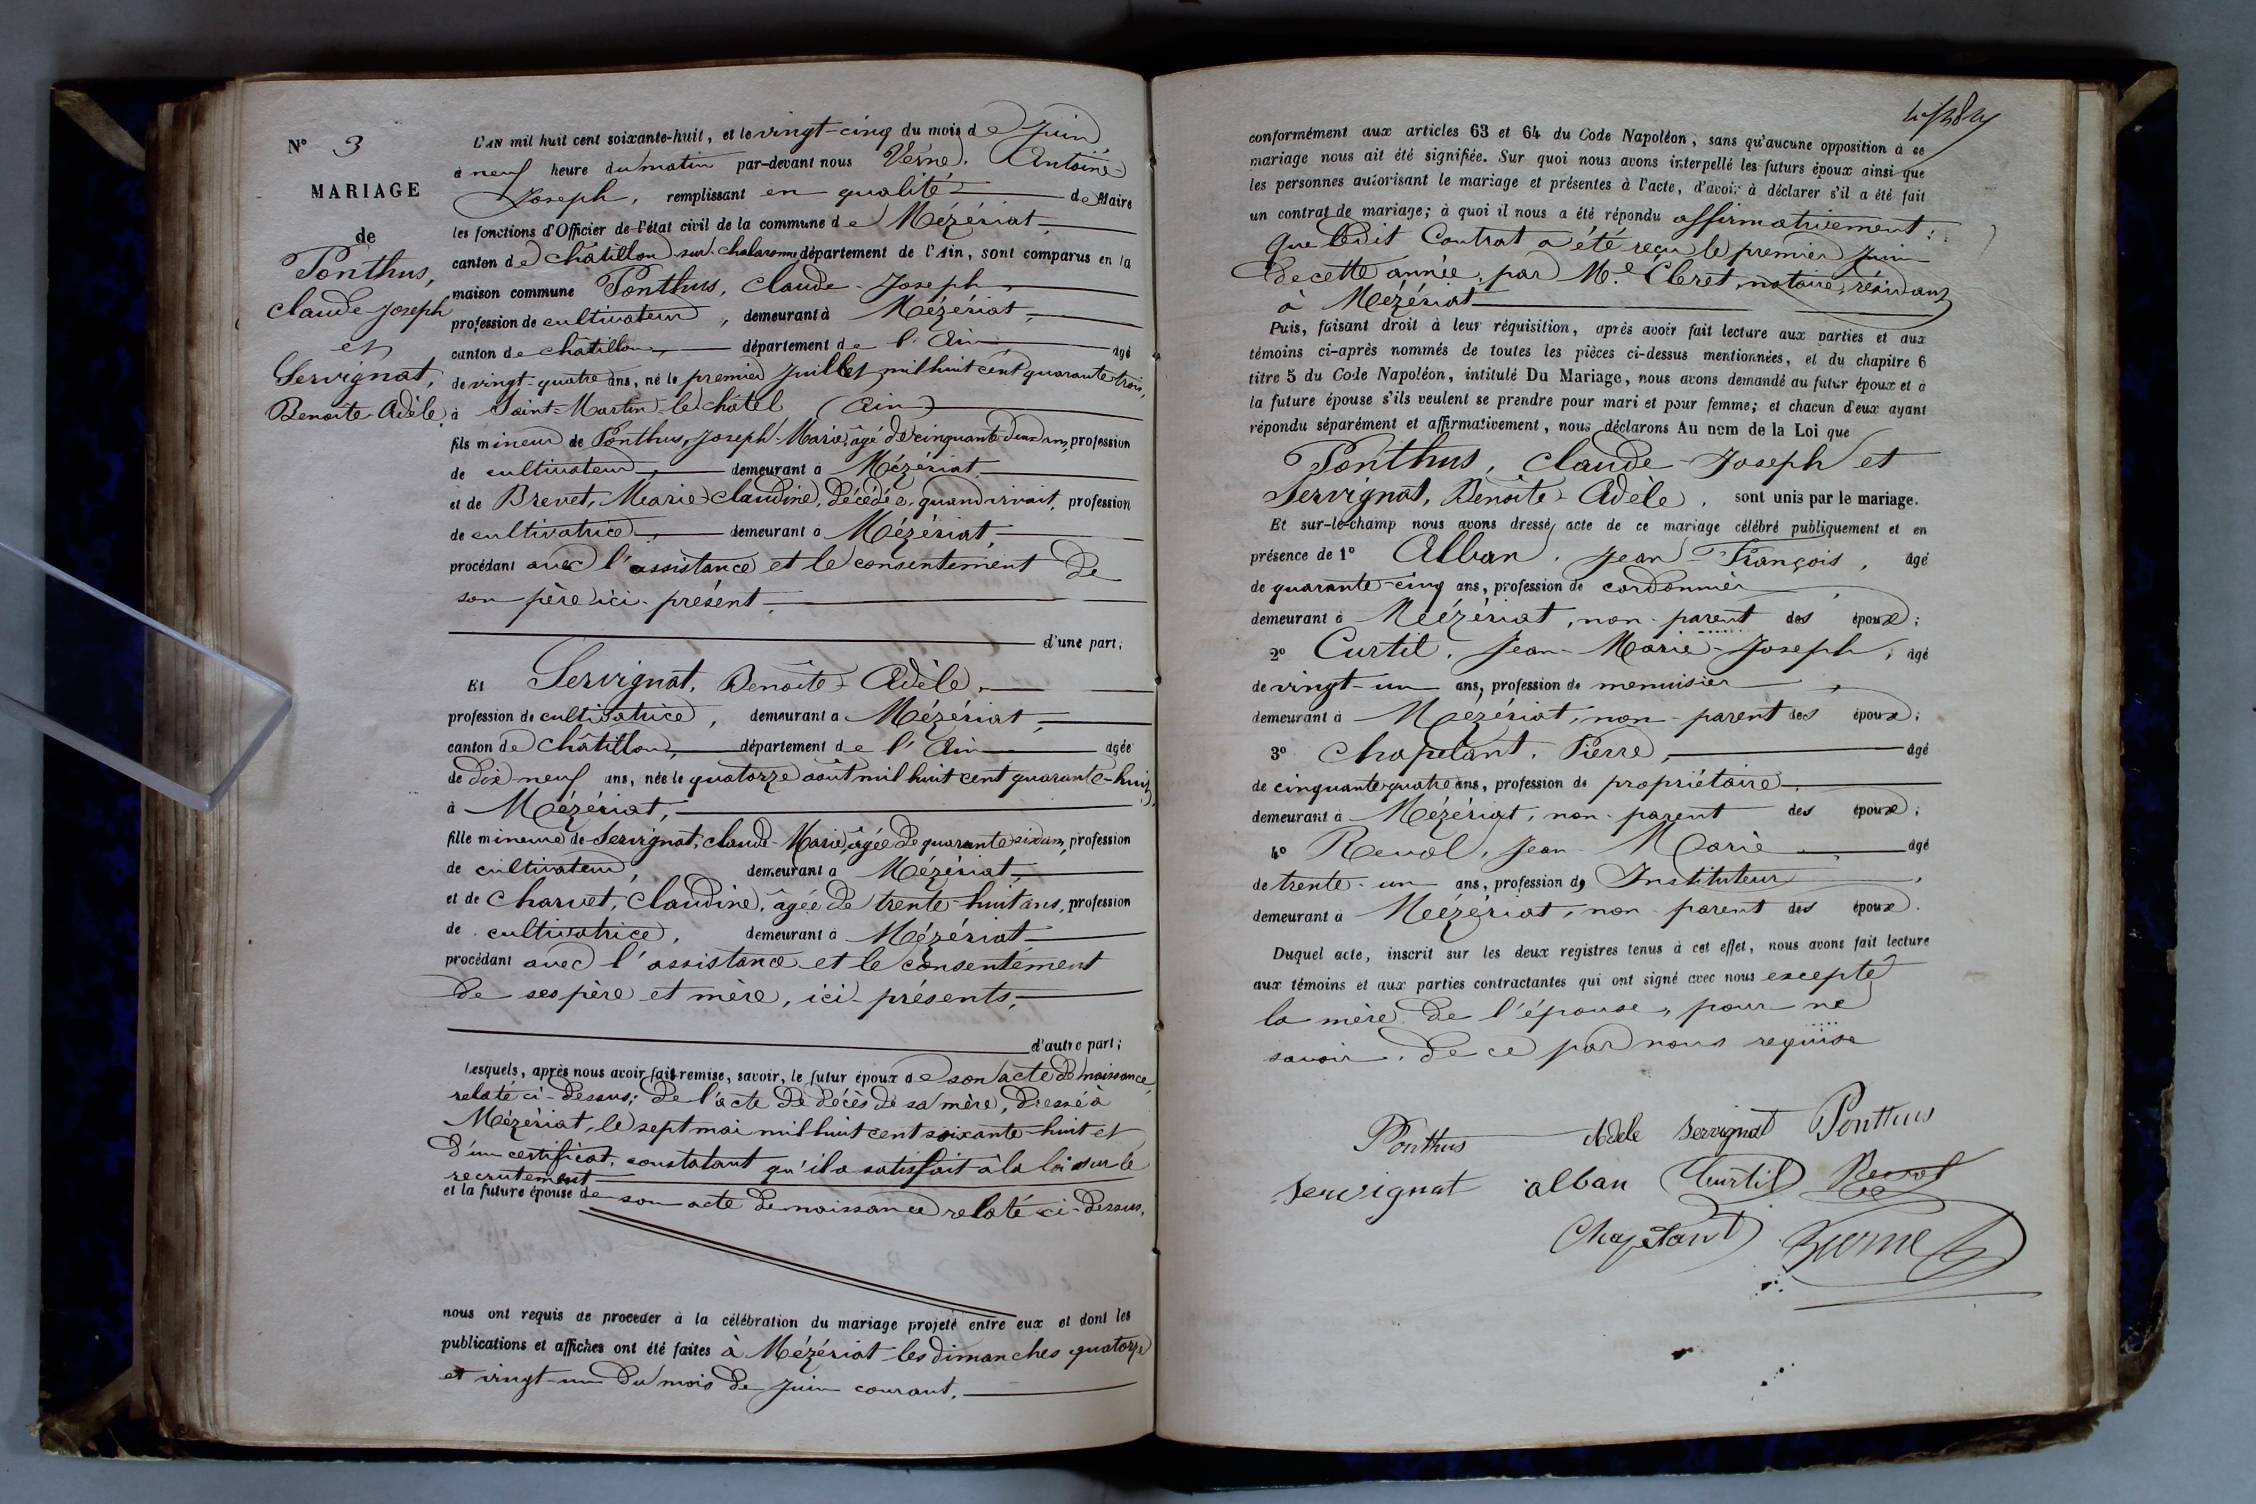 N° 3
MARIAGE
de
Ponthus,
Claude-Joseph
et
Servignat,
Benoite-Adèle.
L'AN mil huit cent soixante-huit, et le vingt-cinq du mois de Juin
à neuf heure du matin par-devant nous Verne, Antoine-
Joseph, remplissant en qualité de Maire
les fonctions d'Officier de l'état civil de la commune de Mézériat,
canton de Châtillon-sur-Chalaronne, département de l'Ain, sont comparus en la
maison commune Ponthus, Claude-Joseph,
profession de cultivateur, demeurant à Mézériat,
canton de Châtillon, département de l'Ain âgé
de vingt-quatre ans, né le premier Juillet mil huit cent quarante trois,
à Saint-Martin-le-Châtel (Ain)
fils mineur de Ponthus, Joseph-Marie, âgé de cinquante-deux ans, profession
de cultivateur, demeurant à Mézériat
et de Brevet, Marie-Claudine, décédée, quand vivait, profession
de cultivatrice, demeurant à Mézériat,
procédant avec l'assistance et le consentement de
son père ici présent,
d'une part;
Et Servignat, Benoîte-Adèle,
profession de cultivatrice, demeurant à Mézériat,
canton de Châtillon, département de l'Ain âgée
de dix neuf ans, née le quatorze août mil huit cent quarante-huit,
à Mézériat,
fille mineure de Servignat, Claude-Marie, âgée de quarante six ans, profession
de cultivateur, demeurant à Mézériat,
et de Charvet, Claudine, âgée de trente-huit ans, profession
de cultivatrice, demeurant à Mézériat
procédant avec l'assistance et le consentement
de ses père et mère, ici-présents,
d'autre part;
Lesquels, après nous avoir fait remise, savoir, le futur époux de son acte de naissance,
relaté ci-dessus; de l'acte de décès de sa mère, dressé à
Mézériat, le sept mai mil huit cent soixante-huit et
d'un certificat, constatant qu'il a satisfait à la loi sur le
recrutement
et la future épouse de son acte de naissance relaté ci-dessus.
nous ont requis de procéder à la célébration du mariage projeté entre eux et dont les
publications et affiches ont été faites à Mézériat les dimanches quatorze
et vingt-un du mois de Juin courant,
conformément aux articles 63 et 64 du Code Napoléon, sans qu'aucune opposition à ce
mariage nous ait été signifiée. Sur quoi nous avons interpellé les futurs époux ainsi que
les personnes autorisant le mariage et présentes à l'acte, d'avoir à déclarer s'il a été fait
un contrat de mariage; à quoi il nous a été répondu affirmativement:
que ledit Contrat a été reçu le premier Juin
de cette année, par Me. Cleret, notaire, résidant
à Mézériat
Puis, faisant droit à leur réquisition, après avoir fait lecture aux parties et aux
témoins ci-après nommés de toutes les pièces ci-dessus mentionnées, et du chapitre 6
titre 5 du Code Napoléon, intitulé Du Mariage, nous avons demandé au futur époux et à
la future épouse s'ils veulent se prendre pour mari et pour femme; et chacun d'eux ayant
répondu séparément et affirmativement, nous déclarons Au nom de la Loi que
Ponthus, Claude-Joseph et
Servignat, Benoîte-Adèle, sont unis par le mariage.
Et sur-le-champ nous avons dressé acte de ce mariage célébré publiquement et en
présence de 1° Alban, Jean-François, âgé
de quarante-cinq ans, profession de cordonnier,
demeurant à Mézériat, non-parent des époux;
2° Curtil, Jean-Marie-Joseph, âgé
de vingt-un ans, profession de menuisier,
demeurant à Mézériat, non-parent des époux;
3° Chapelant, Pierre, âgé
de cinquante-quatre ans, profession de propriétaire,
demeurant à Mézériat, non-parent des époux;
4° Revol, Jean-Marie, âgé
de trente-un ans, profession d' Instituteur,
demeurant à Mézériat, non-parent des époux.
Duquel acte, inscrit sur les deux registres tenus à cet effet, nous avons fait lecture
aux témoins et aux parties contractantes qui ont signé avec nous excepté
la mère de l'épouse, pour ne
savoir, de ce par nous requise
Ponthus Adele Servignat Ponthus
Servignat alban Curtil Revol
Chapelant Verne